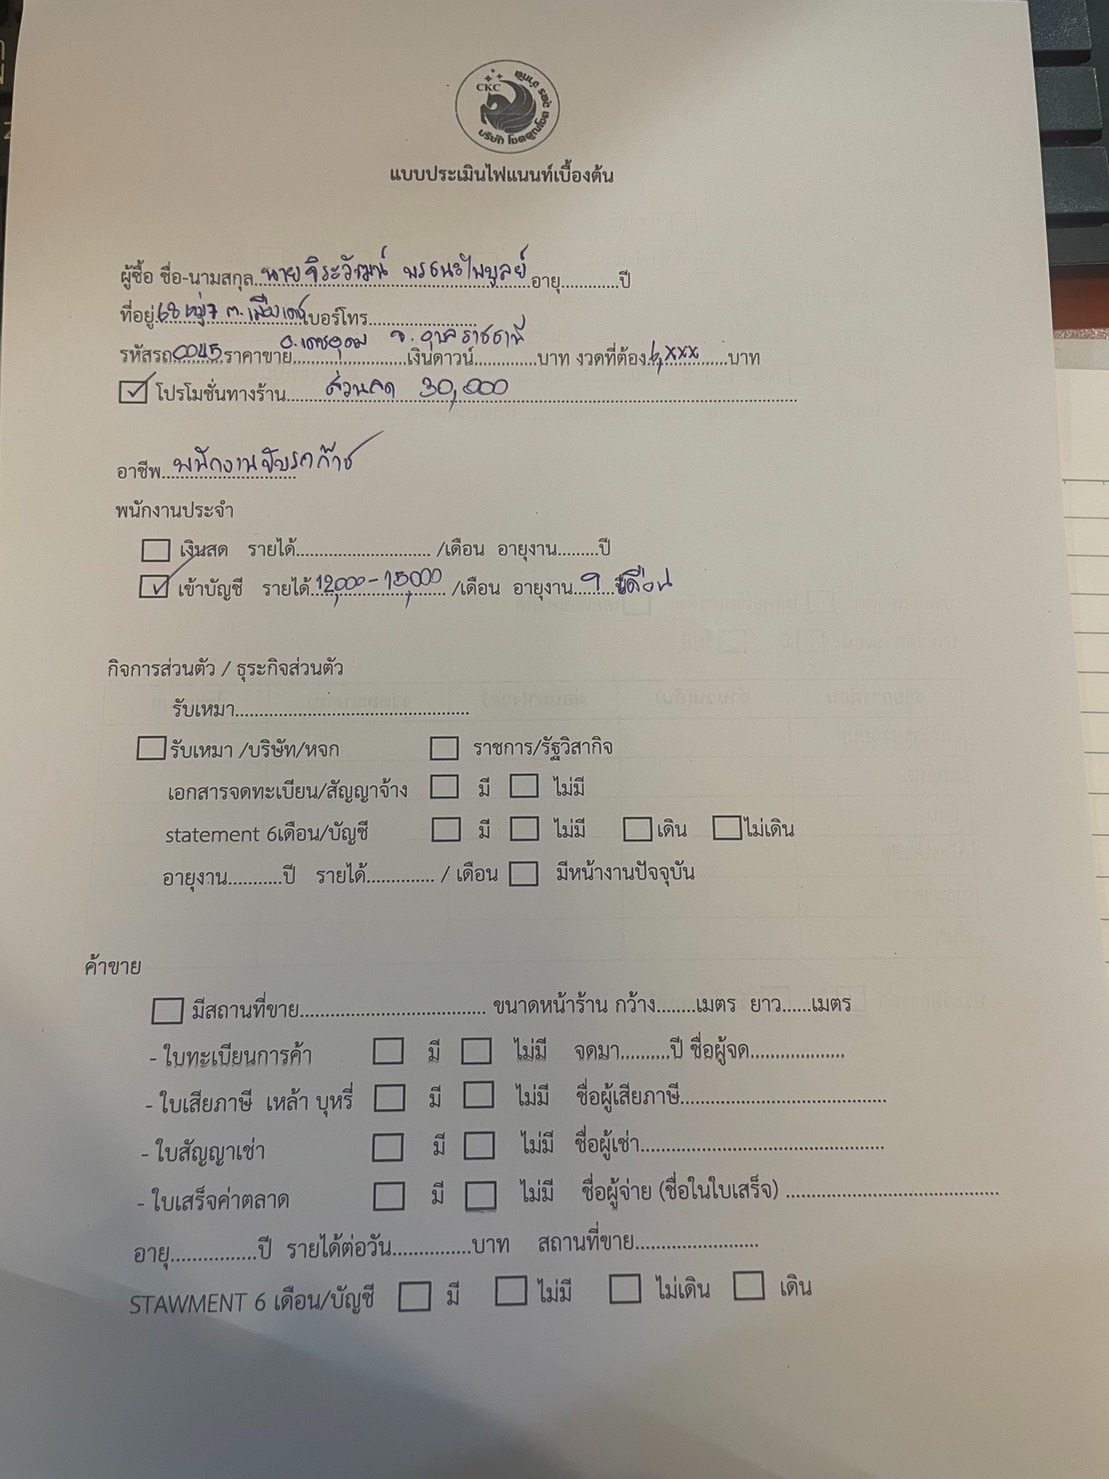 CKC
บริษัท โชคคูณโชค ออโต้ จำกัด
แบบประเมินไฟแนนท์เบื้องต้น
ผู้ซื้อ ชื่อ-นามสกุล..นายจิระวัฒน์ พรธนะไพบูลย์ อายุ............ปี
ที่อยู่ 68 หมู่ 7 ต.เมืองเดช เบอร์โทร........................
อ.เดชอุดม จ.อุบลราชธานี
รหัสรถ 0045 ราคาขาย........................เงินดาวน์.............บาท งวดที่ต้อง 6,xxx......บาท
โปรโมชั่นทางร้าน........ส่วนลด 30,000........
อาชีพ..พนักงานขับรถก๊าซ
พนักงานประจำ
เงินสด รายได้............................ /เดือน อายุงาน.........ปี
เข้าบัญชี รายได้ 12,000-15,000 /เดือน อายุงาน...9...เดือน
กิจการส่วนตัว / ธุระกิจส่วนตัว
รับเหมา..................................................
รับเหมา /บริษัท/หจก ราชการ/รัฐวิสากิจ
เอกสารจดทะเบียน/สัญญาจ้าง มี ไม่มี
statement 6เดือน/บัญชี มี ไม่มี เดิน ไม่เดิน
อายุงาน...........ปี รายได้.............. / เดือน มีหน้างานปัจจุบัน
ค้าขาย
มีสถานที่ขาย....................................... ขนาดหน้าร้าน กว้าง........เมตร ยาว......เมตร
- ใบทะเบียนการค้า มี ไม่มี จดมา..........ปี ชื่อผู้จด...................
- ใบเสียภาษี เหล้า บุหรี่ มี ไม่มี ชื่อผู้เสียภาษี..........................................
- ใบสัญญาเช่า มี ไม่มี ชื่อผู้เช่า..................................................
- ใบเสร็จค่าตลาด มี ไม่มี ชื่อผู้จ่าย (ชื่อในใบเสร็จ) ...........................................
อายุ................ปี รายได้ต่อวัน...............บาท สถานที่ขาย.........................
STAWMENT 6 เดือน/บัญชี มี ไม่มี ไม่เดิน เดิน